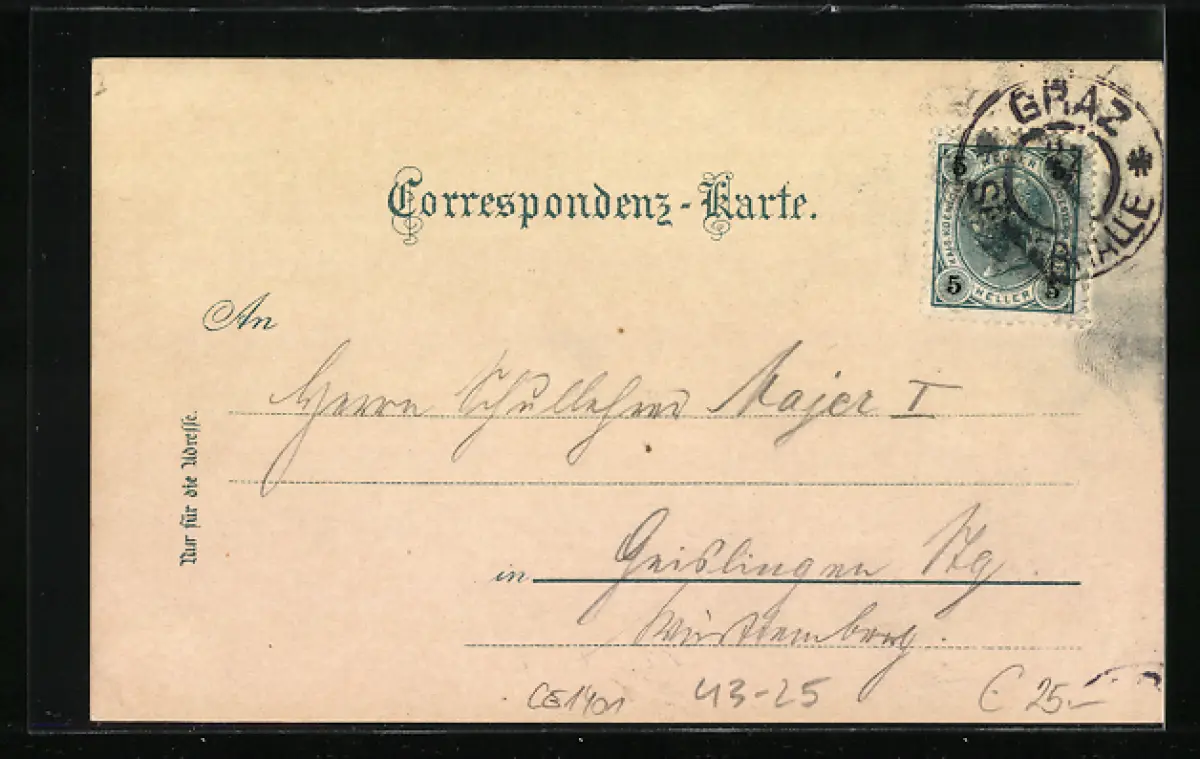 Correspondenz-Karte.
GRAZ
HALLE
5
HELLER
5 HELLER 5
An
Herrn Schullehrer Majer I
Nur für die Adresse.
in Geislingen Stg.
Württemberg.
CE1401 43-25 € 25.-